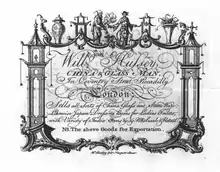 Will^m Hussey
CHINA & GLASS MAN
in Coventry Street Piccadilly
London
Sells all sorts of China, Glass and Stone Ware
Likewise Japan Dressing Boxes for Ladies Toilets,
with Variety of
NB. The above Goods for Exportation.